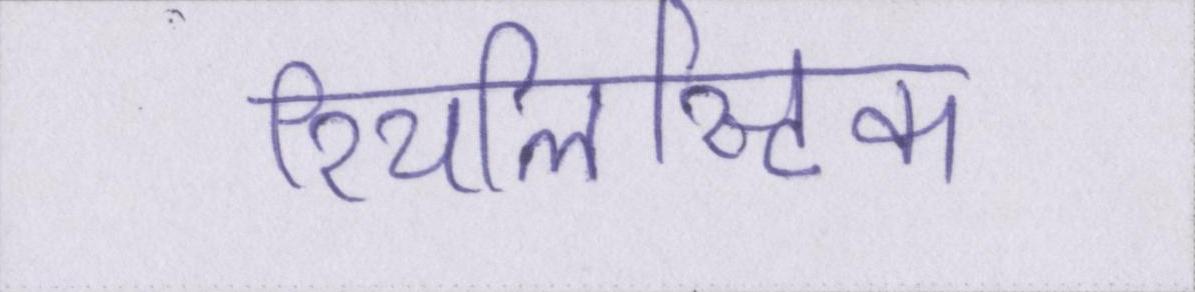 रियलिस्टिक